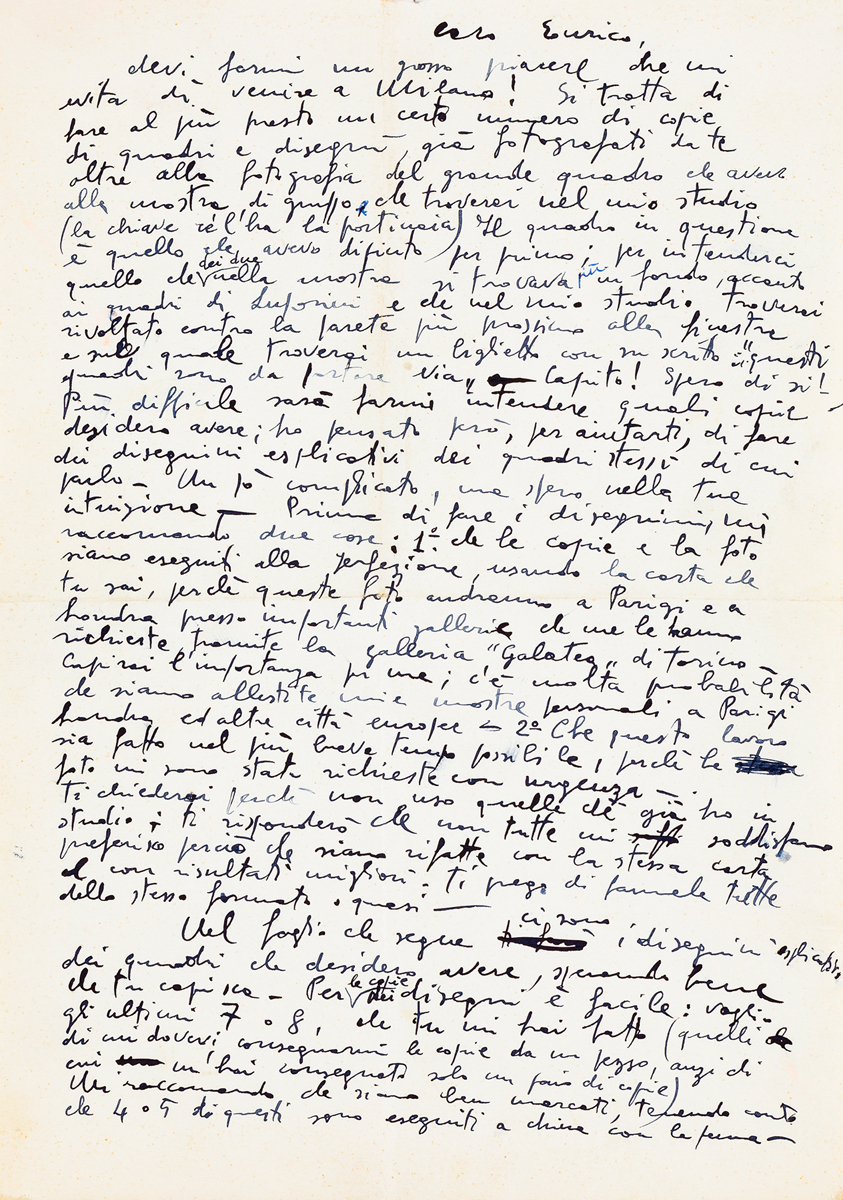 Caro Enrico,
devi farmi un grosso piacere che mi
evita di venire a Milano! Si tratta di
fare al più presto un certo numero di copie
di quadri e disegni, già fotografati da te
oltre alla fotografia del grande quadro che avevo
alla mostra di gruppo che troverai nel mio studio
(la chiave ce l'ha la portinaia) Il quadro in questione
è quello che avevo dipinto per primo; per intenderci
quello che dei due nella mostra si trovava più in fondo, accanto
ai quadri di Luporini e che nel mio studio troverai
rivoltato contro la parete più prossima alla finestra
e sul quale troverai un biglietto con su scritto: "questi
quadri sono da portare via" Capito! Spero di sì!
Più difficile sarà farmi intendere quali copie
desidero avere; ho pensato però, per aiutarti, di fare
dei disegnini esplicativi dei quadri stessi di cui
parlo - Un pò complicato, ma spero nella tua
intuizione - Prima di fare i disegnini, mi
raccomando due cose: 1º che le copie e la foto
siano eseguiti alla perfezione, usando la carta che
tu sai, perchè queste foto andranno a Parigi e a
Londra presso importanti gallerie che me le hanno
richieste, tramite la galleria "Galatea" di Torino -
Capirai l'importanza per me; c'è molta probabilità
che siano allestite mie mostre personali a Parigi
Londra ed altre città europee - 2º Che questo lavoro
sia fatto nel più breve tempo possibile, perchè le
foto mi sono state richieste con urgenza -
Ti chiederai perchè non uso quelle che già ho in
studio; ti risponderò che non tutte mi soddisfano
preferisco perciò che siano rifatte con la stessa carta
e con risultati migliori; ti prego di farmele tutte
dello stesso formato o quasi -
Nel foglio che segue ci sono i disegnini esplicativi
dei quadri che desidero avere, sperando bene
che tu capisca - Per le copie dei disegni è facile: voglio
gli ultimi 7 o 8, che tu mi hai fatto (quelli
di cui dovevi consegnarmi le copie da un pezzo, anzi di
cui m'hai consegnato solo un paio di copie)
Mi raccomando che siano ben marcati, tenendo conto
che 4 o 5 di questi sono eseguiti a china con la penna -